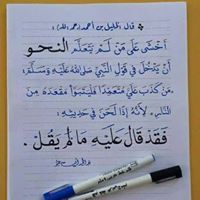 قال الخليل بن أحمد (رحمه الله) :
أَخْشَى عَلَى مَنْ لَمْ يَتَعَلَّمِ النحو
أَنْ يَدْخُلَ فِي قَوْلِ النَّبِيِّ صَلَّى اللهُ عَلَيْهِ وَسَلَّمَ:
مَنْ كَذَبَ عَلَيَّ مُتَعَمِّدًا فَلْيَتَبَوَّأْ مَقْعَدَهُ مِنَ
النَّارِ، لِأَنَّهُ إِذَا لَحَنَ فِي حَدِيثِهِ؛
فَقَدْ قَالَ عَلَيْهِ مَا لَمْ يَقُلْ.